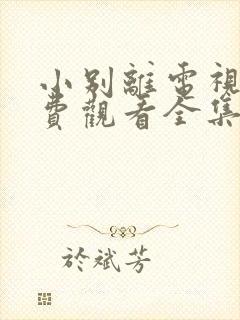 小別離電視
費觀看全集
於斌芳